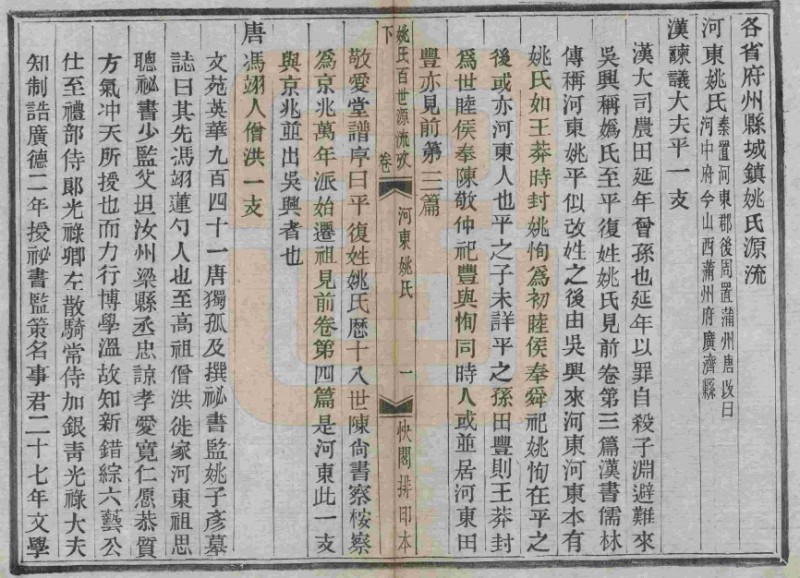 各省府州縣城鎮姚氏源流
河東姚氏秦置河東郡後周置蒲州唐改曰
河中府今山西蒲州府廣濟縣
漢諫議大夫平一支
漢大司農田延年曾孫也延年以罪自殺子淵避難來
吳興稱嬀氏至平復姓姚氏見前卷第三篇漢書儒林
傳稱河東姚平似改姓之後由吳興來河東河東本有
姚氏如王莽時封姚恂爲初睦侯奉舜祀姚恂在平之
後或亦河東人也平之子未詳平之孫田豐則王莽封
爲世睦侯奉陳敬仲祀豐與恂同時人或並居河東田
豐亦見前第三篇
姚氏百世源流攷 卷下 河東姚氏 一 快閣排印本
敬愛堂譜序曰平復姓姚氏歷十入世陳尙書察桉察
爲京兆萬年派始遷祖見前卷第四篇是河東此一支
與京兆並出吳興者也
唐馮翊人僧洪一支
文苑英華九百四十一唐獨孤及撰祕書監姚子彥墓
誌曰其先馮翊蓮勺人也至高祖僧洪徙家河東祖思
聰祕書少監父坦汝州梁縣丞忠諒孝愛寬仁愿恭質
方氣冲天所授也而力行博學溫故知新錯綜六藝公
仕至禮部侍郞光祿卿左散騎常侍加銀靑光祿大夫
知制誥廣德二年授祕書監策名事君二十七年文學